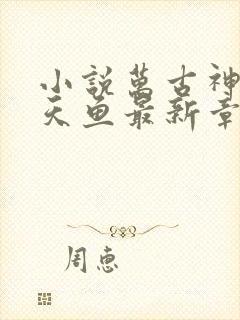 小説萬古神
天魚最新章
周惠